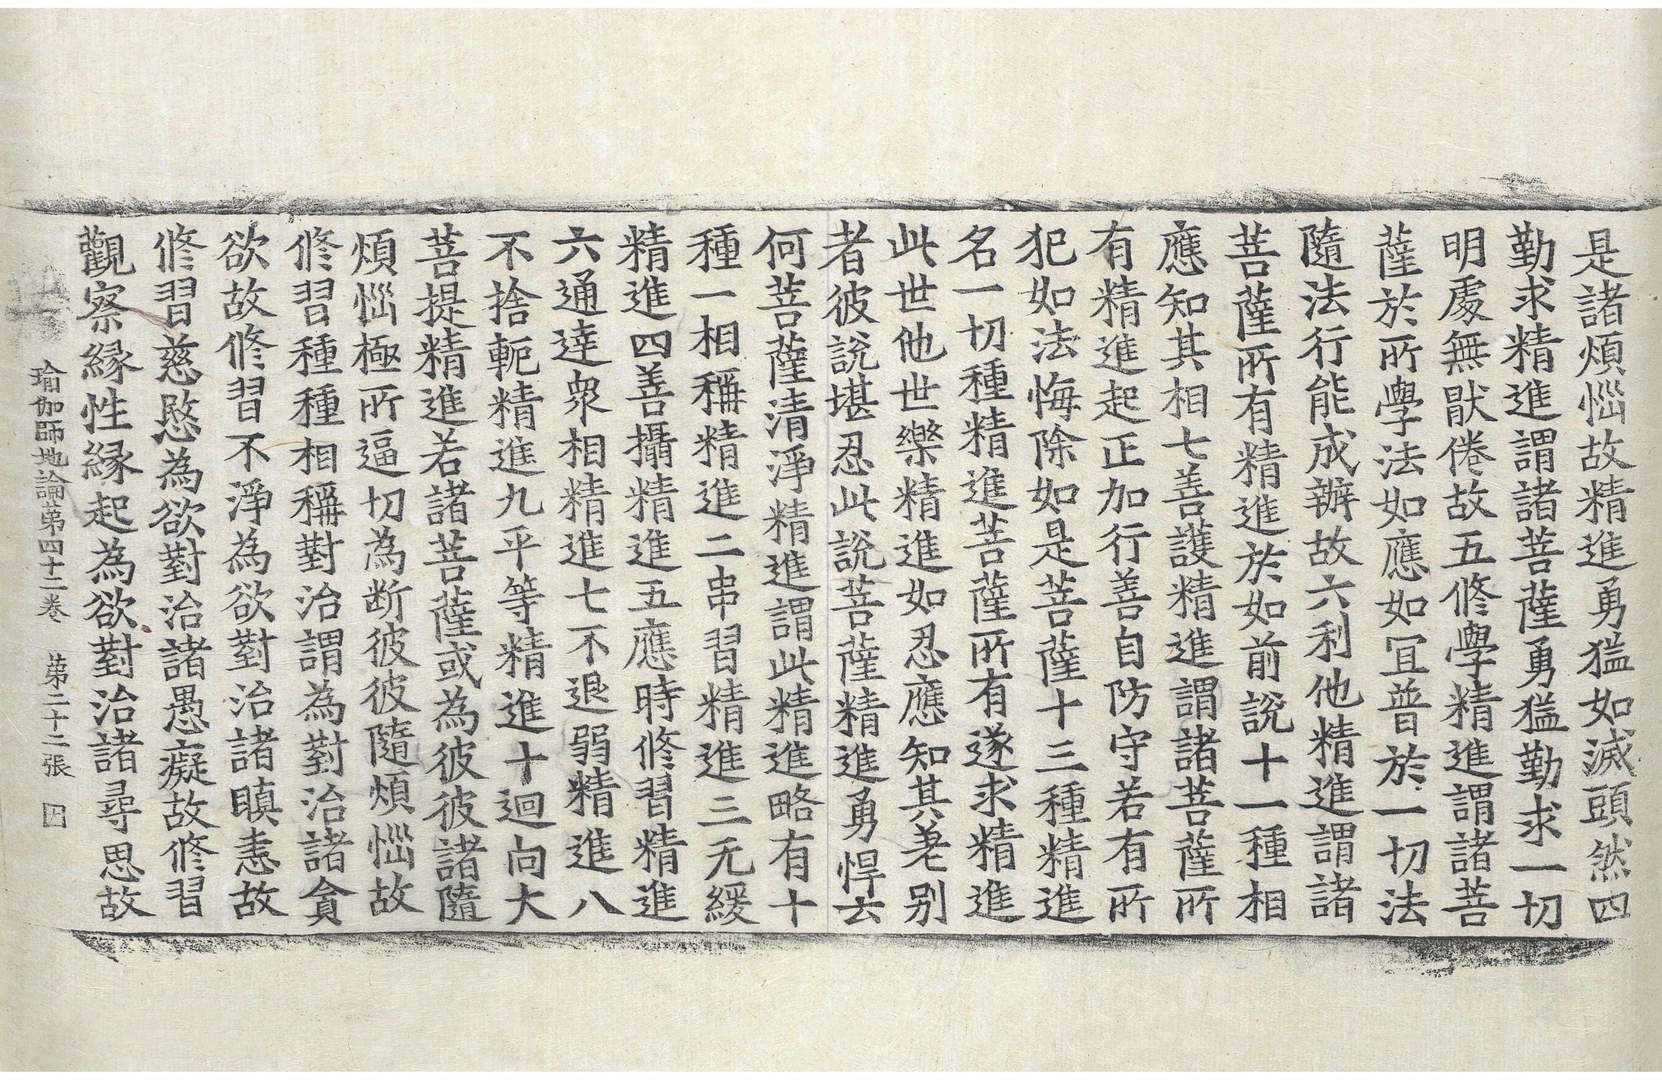 是諸煩惱故精進勇猛如滅頭然四
勤求精進謂諸菩薩勇猛勤求一切
明處無猒倦故五修學精進謂諸菩
薩於所學法如應如冝普於一切法
隨法行能成辦故六利他精進謂諸
菩薩所有精進於如前說十一種相
應知其相七善護精進謂諸菩薩所
有精進起正加行善自防守若有所
犯如法悔除如是菩薩十三種精進
名一切種精進菩薩所有遂求精進
此世他世樂精進如忍應知其差别
者彼說堪忍此說菩薩精進勇悍云
何菩薩清淨精進謂此精進略有十
種一相稱精進二串習精進三无緩
精進四善攝精進五應時修習精進
六通達衆相精進七不退弱精進八
不捨軛精進九平等精進十迴向大
菩提精進若諸菩薩或為彼彼諸隨
煩惱極所逼切為断彼彼隨煩惱故
修習種種相稱對治謂為對治諸貪
欲故修習不淨為欲對治諸瞋恚故
修習慈愍為欲對治諸愚癡故修習
觀察縁性縁起為欲對治諸尋思故
瑜伽師地論第四十二卷 第二十二張 囚